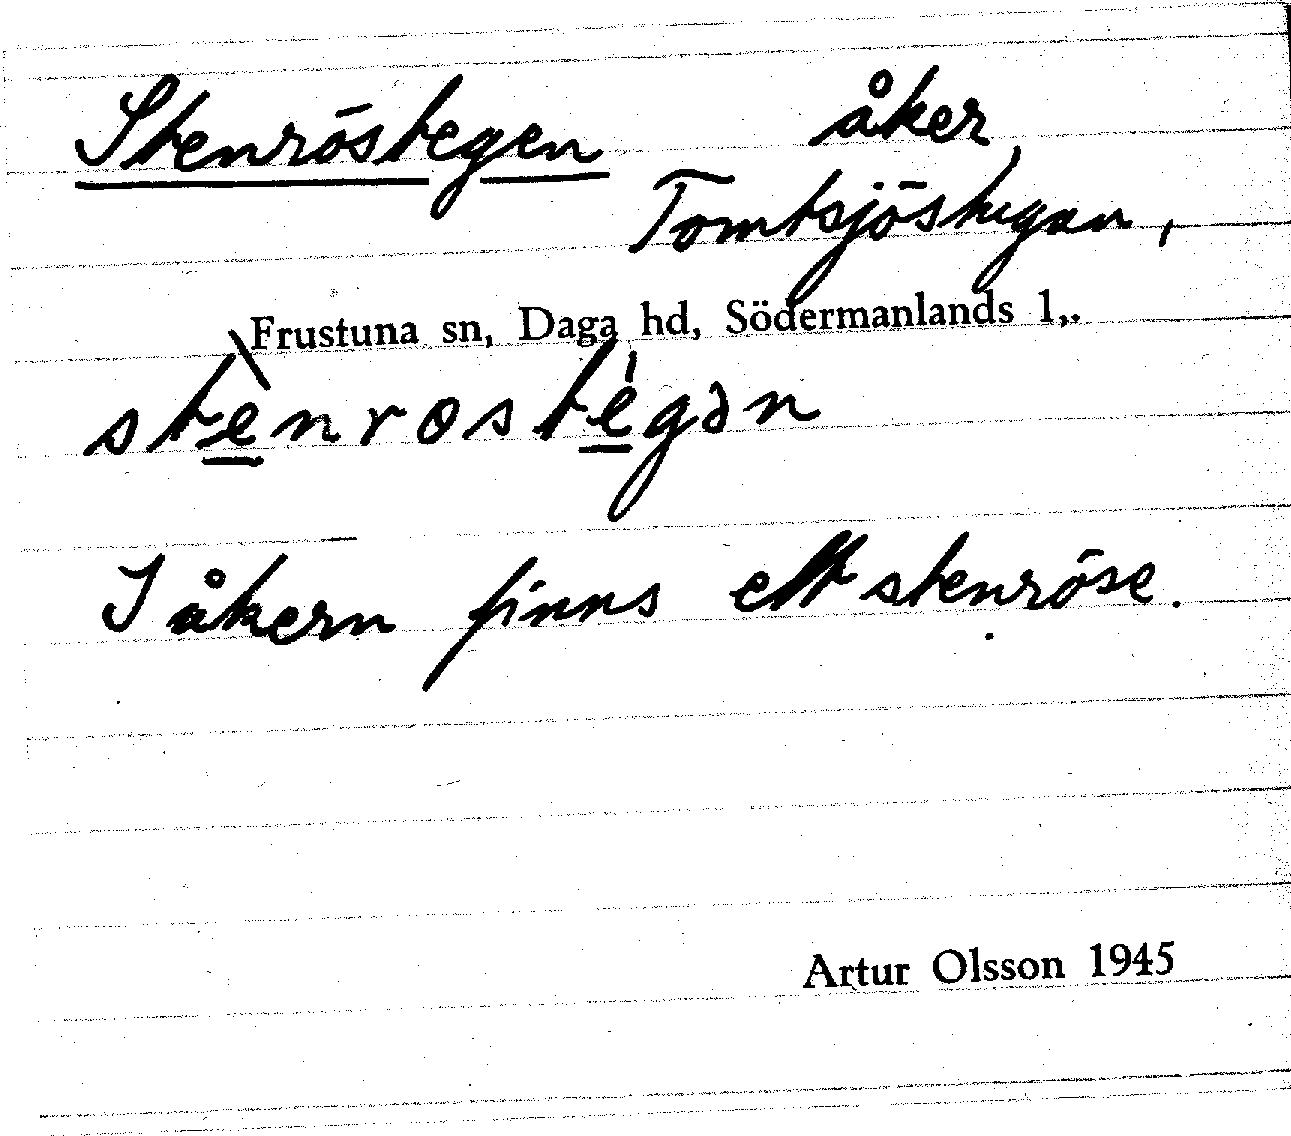 Stenröstegen åker,
Tomtsjöstugan,
Frustuna sn, Daga hd, Södermanlands l,.
stè̱nrosté̱gən
I åkern finns ett stenröse.
Artur Olsson 1945